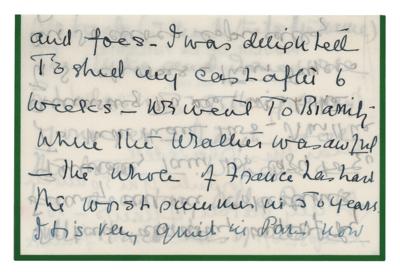 and foes - I was delighted
To shed my cast after 6
weeks - We went To Biarritz
where the weather was awful
- the whole of France has had
the worst summer in 50 years.
It is very quiet in Paris now